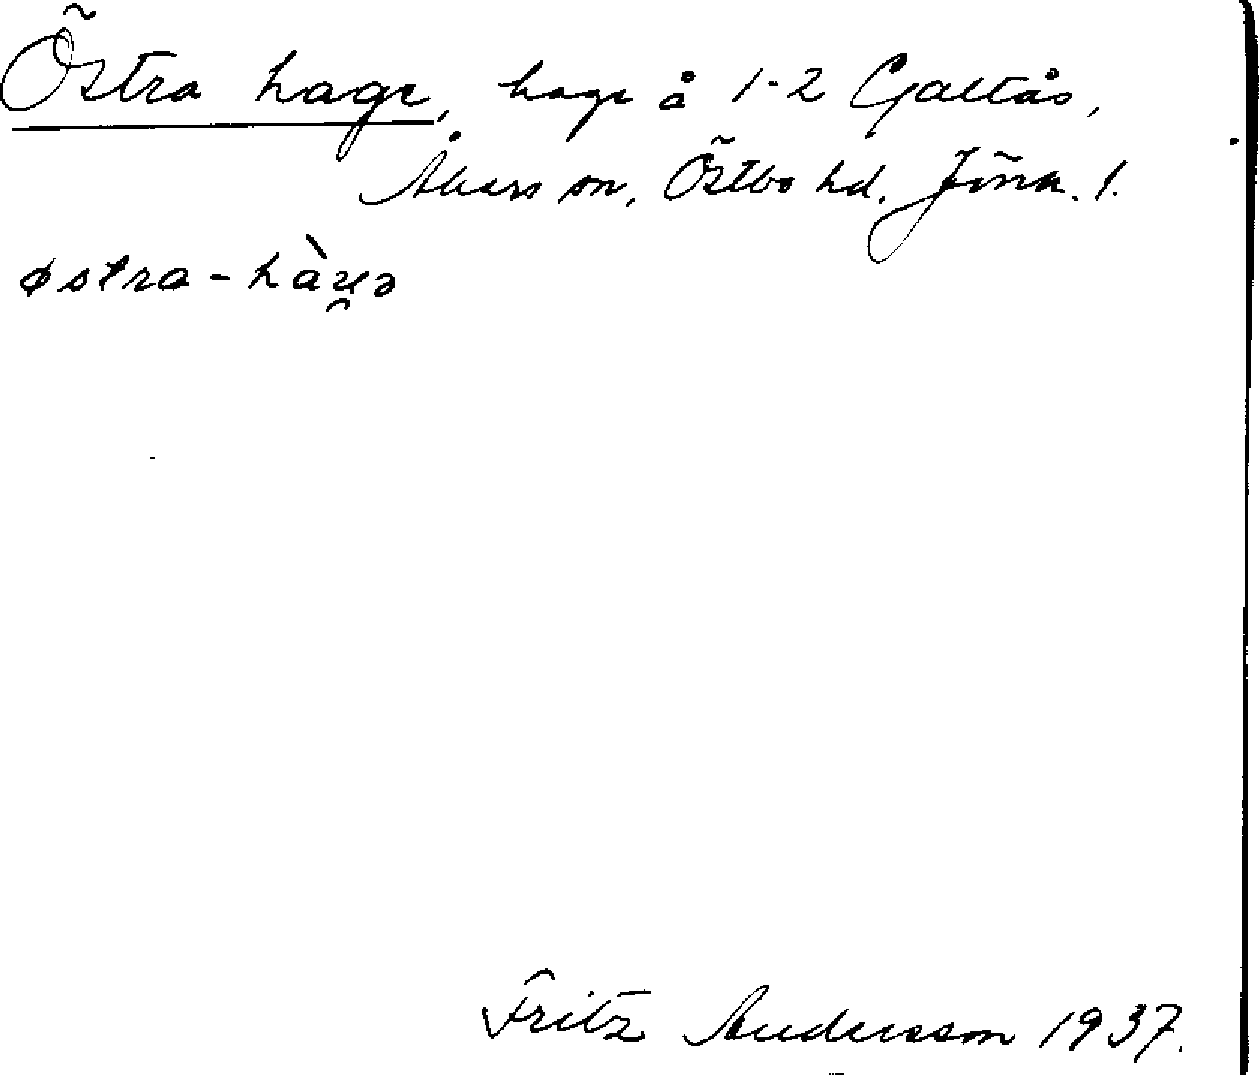 Östra hage, hage å 1-2 Galtås,
Åkers sn, Östbo hd. Jönk. l.
østra-hàɥə
Fritz Andersson 1937.